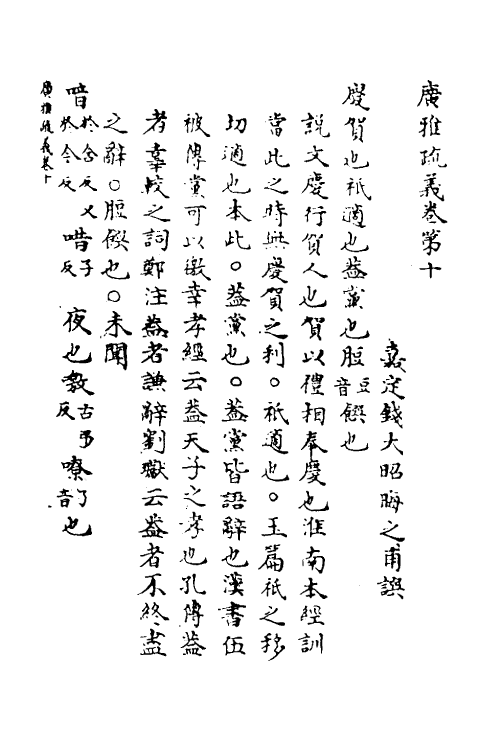 廣雅疏義卷第十
嘉定錢大昭晦之甫譔
慶賀也祇適也葢黨也脰豆音饌也
説文慶行賀人也賀以禮相奉慶也淮南本經訓
當此之時無慶賀之利〇祇適也〇玉篇祇之移
切適也本此〇葢黨也〇葢黨皆語辭也漢書伍
被傳黨可以徼幸孝經云葢天子之孝也孔傳葢
者辜較之詞鄭注葢者謙辭劉瓛云葢者不終盡
之辭〇脰饌也〇未聞
喑於含反又於今反唶子夜反也敎古弔反嘹了音也
廣雅疏義卷十